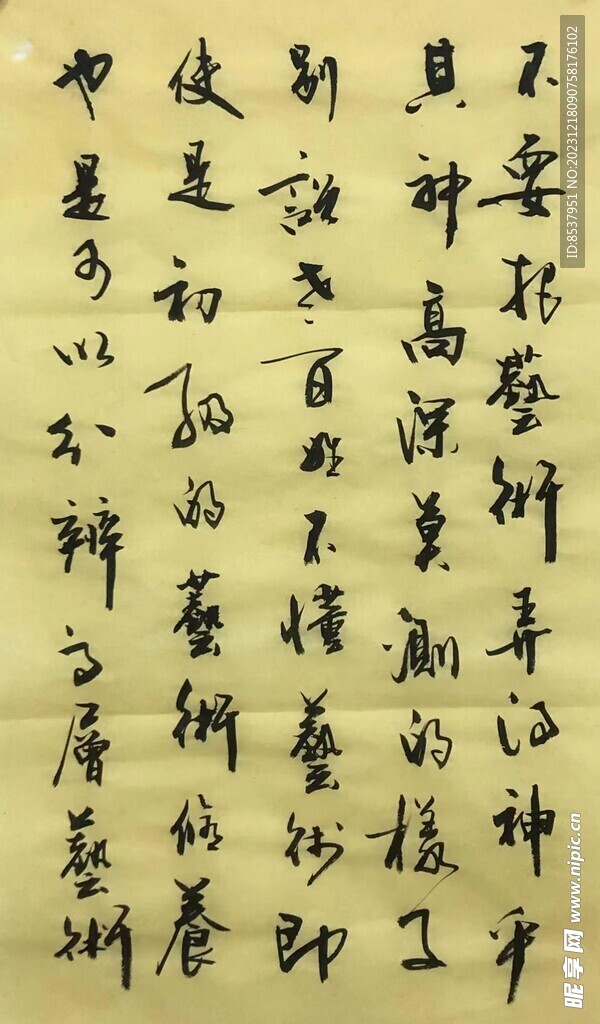 不要把藝術弄得神乎
其神高深莫測的樣子
别說老百姓不懂藝術即
使是初級的藝術修養
也是可以分辨高層藝術
ID:8537951 NO:20231218090758176102
昵享网 www.nipic.cn